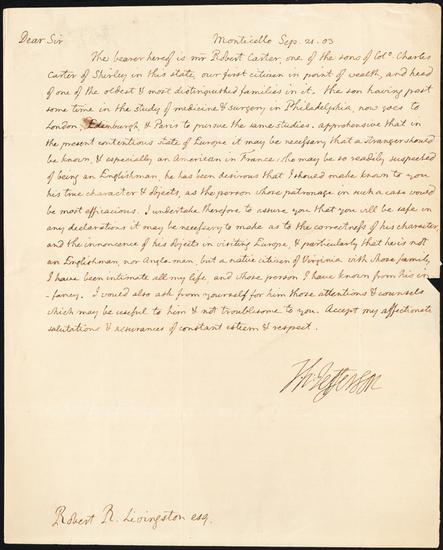 Dear Sir Monticello Sep. 21. 03
The bearer hereof is mr Robert Carter, one of the sons of Colo. Charles
Carter of Shirley in this state, our first citizen in point of wealth, and head
of one of the oldest & most distinguished families in it. the son having past
some time in the study of medicine & surgery in Philadelphia, now goes to
London, Edenburgh, & Paris to pursue the same studies. apprehensive that in
the present contentious state of Europe it may be necessary that a stranger should
be known, & especially an American in France, he may be so readily suspected
of being an Englishman, he has been desirous that I should make known to you
his true character & objects, as the person whose patronage in such a case would
be most efficacious. I undertake therefore to assure you that you will be safe in
any declarations it may be necessary to make as to the correctness of his character,
and the innocence of his objects in visiting Europe, & particularly that he is not
an Englishman, nor Anglo-man, but a native citizen of Virginia with whose family
I have been intimate all my life, and whose person I have known from his in
-fancy. I would also ask from yourself for him those attentions & counsels
which may be useful to him & not troublesome to you. Accept my affectionate
salutations & assurances of constant esteem & respect.
Th: Jefferson
Robert R. Livingston esq.